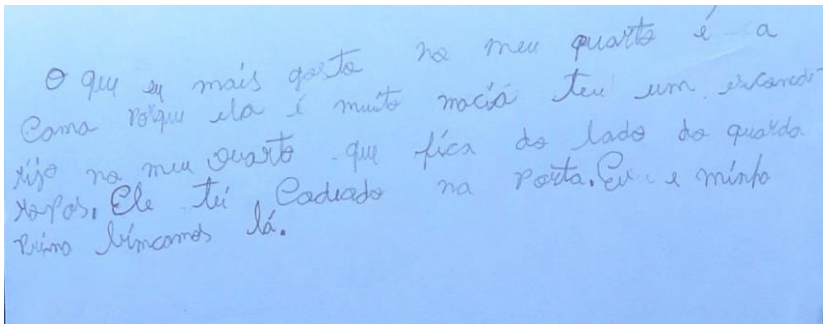 O que eu mais gosto no meu quarto é a
Cama Porque ela é muito maciá teú um esconde
rijo no meu Quarto que fica do lado do guarda
ropas. Ele teú Cadeado na Porta. Eu e minho
Primo bimcamos lá.